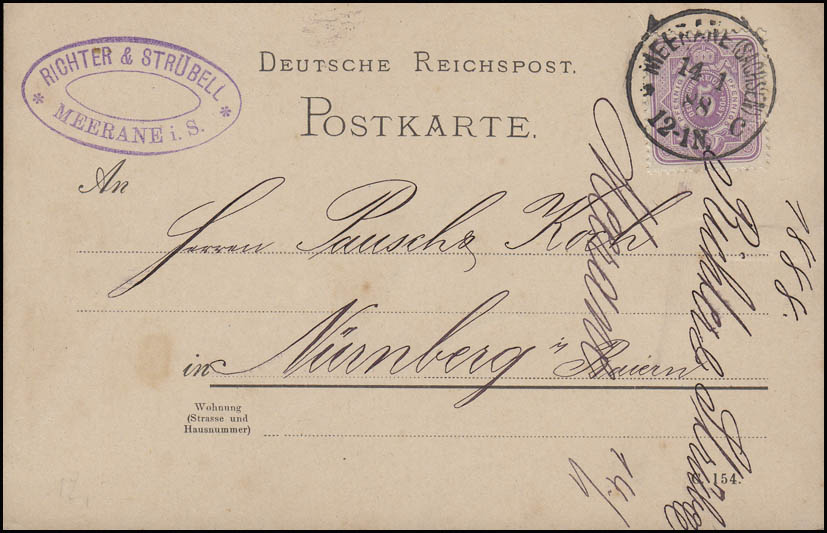 RICHTER & STRÜBELL
* MEERANE i. S. *
DEUTSCHE REICHSPOST.
POSTKARTE.
MEERANE (SACHSEN)
14 1
88
12-1N. C
An
Herren Pausch & Koch
in Nürnberg in Baiern
Wohnung
(Strasse und
Hausnummer)
154.
1888.
Richter & Strübell
Meerane
14/1